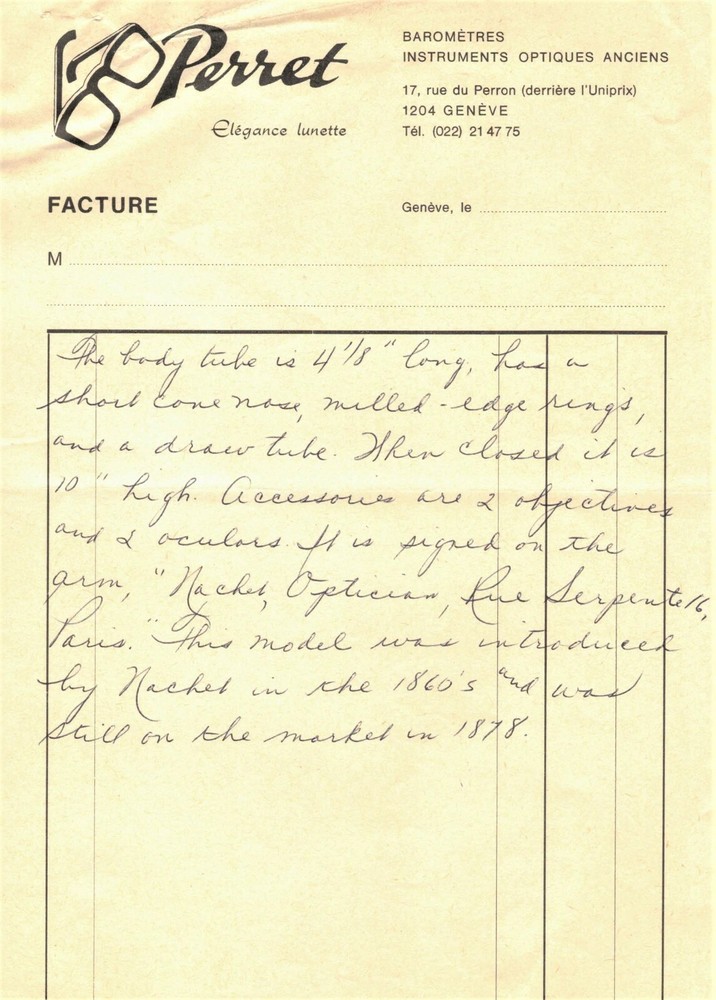 Perret
Elégance lunette
BAROMÈTRES
INSTRUMENTS OPTIQUES ANCIENS
17, rue du Perron (derrière l'Uniprix)
1204 GENÈVE
Tél. (022) 21 47 75
FACTURE
Genève, le
M
The body tube is 4 1/8" long, has a
short cone nose, milled-edge rings,
and a draw tube. When closed it is
10" high. Accessories are 2 objectives
and 2 oculars. It is signed on the
arm, "Nachet, Opticien, Rue Serpente 16,
Paris." This model was introduced
by Nachet in the 1860's and was
still on the market in 1878.